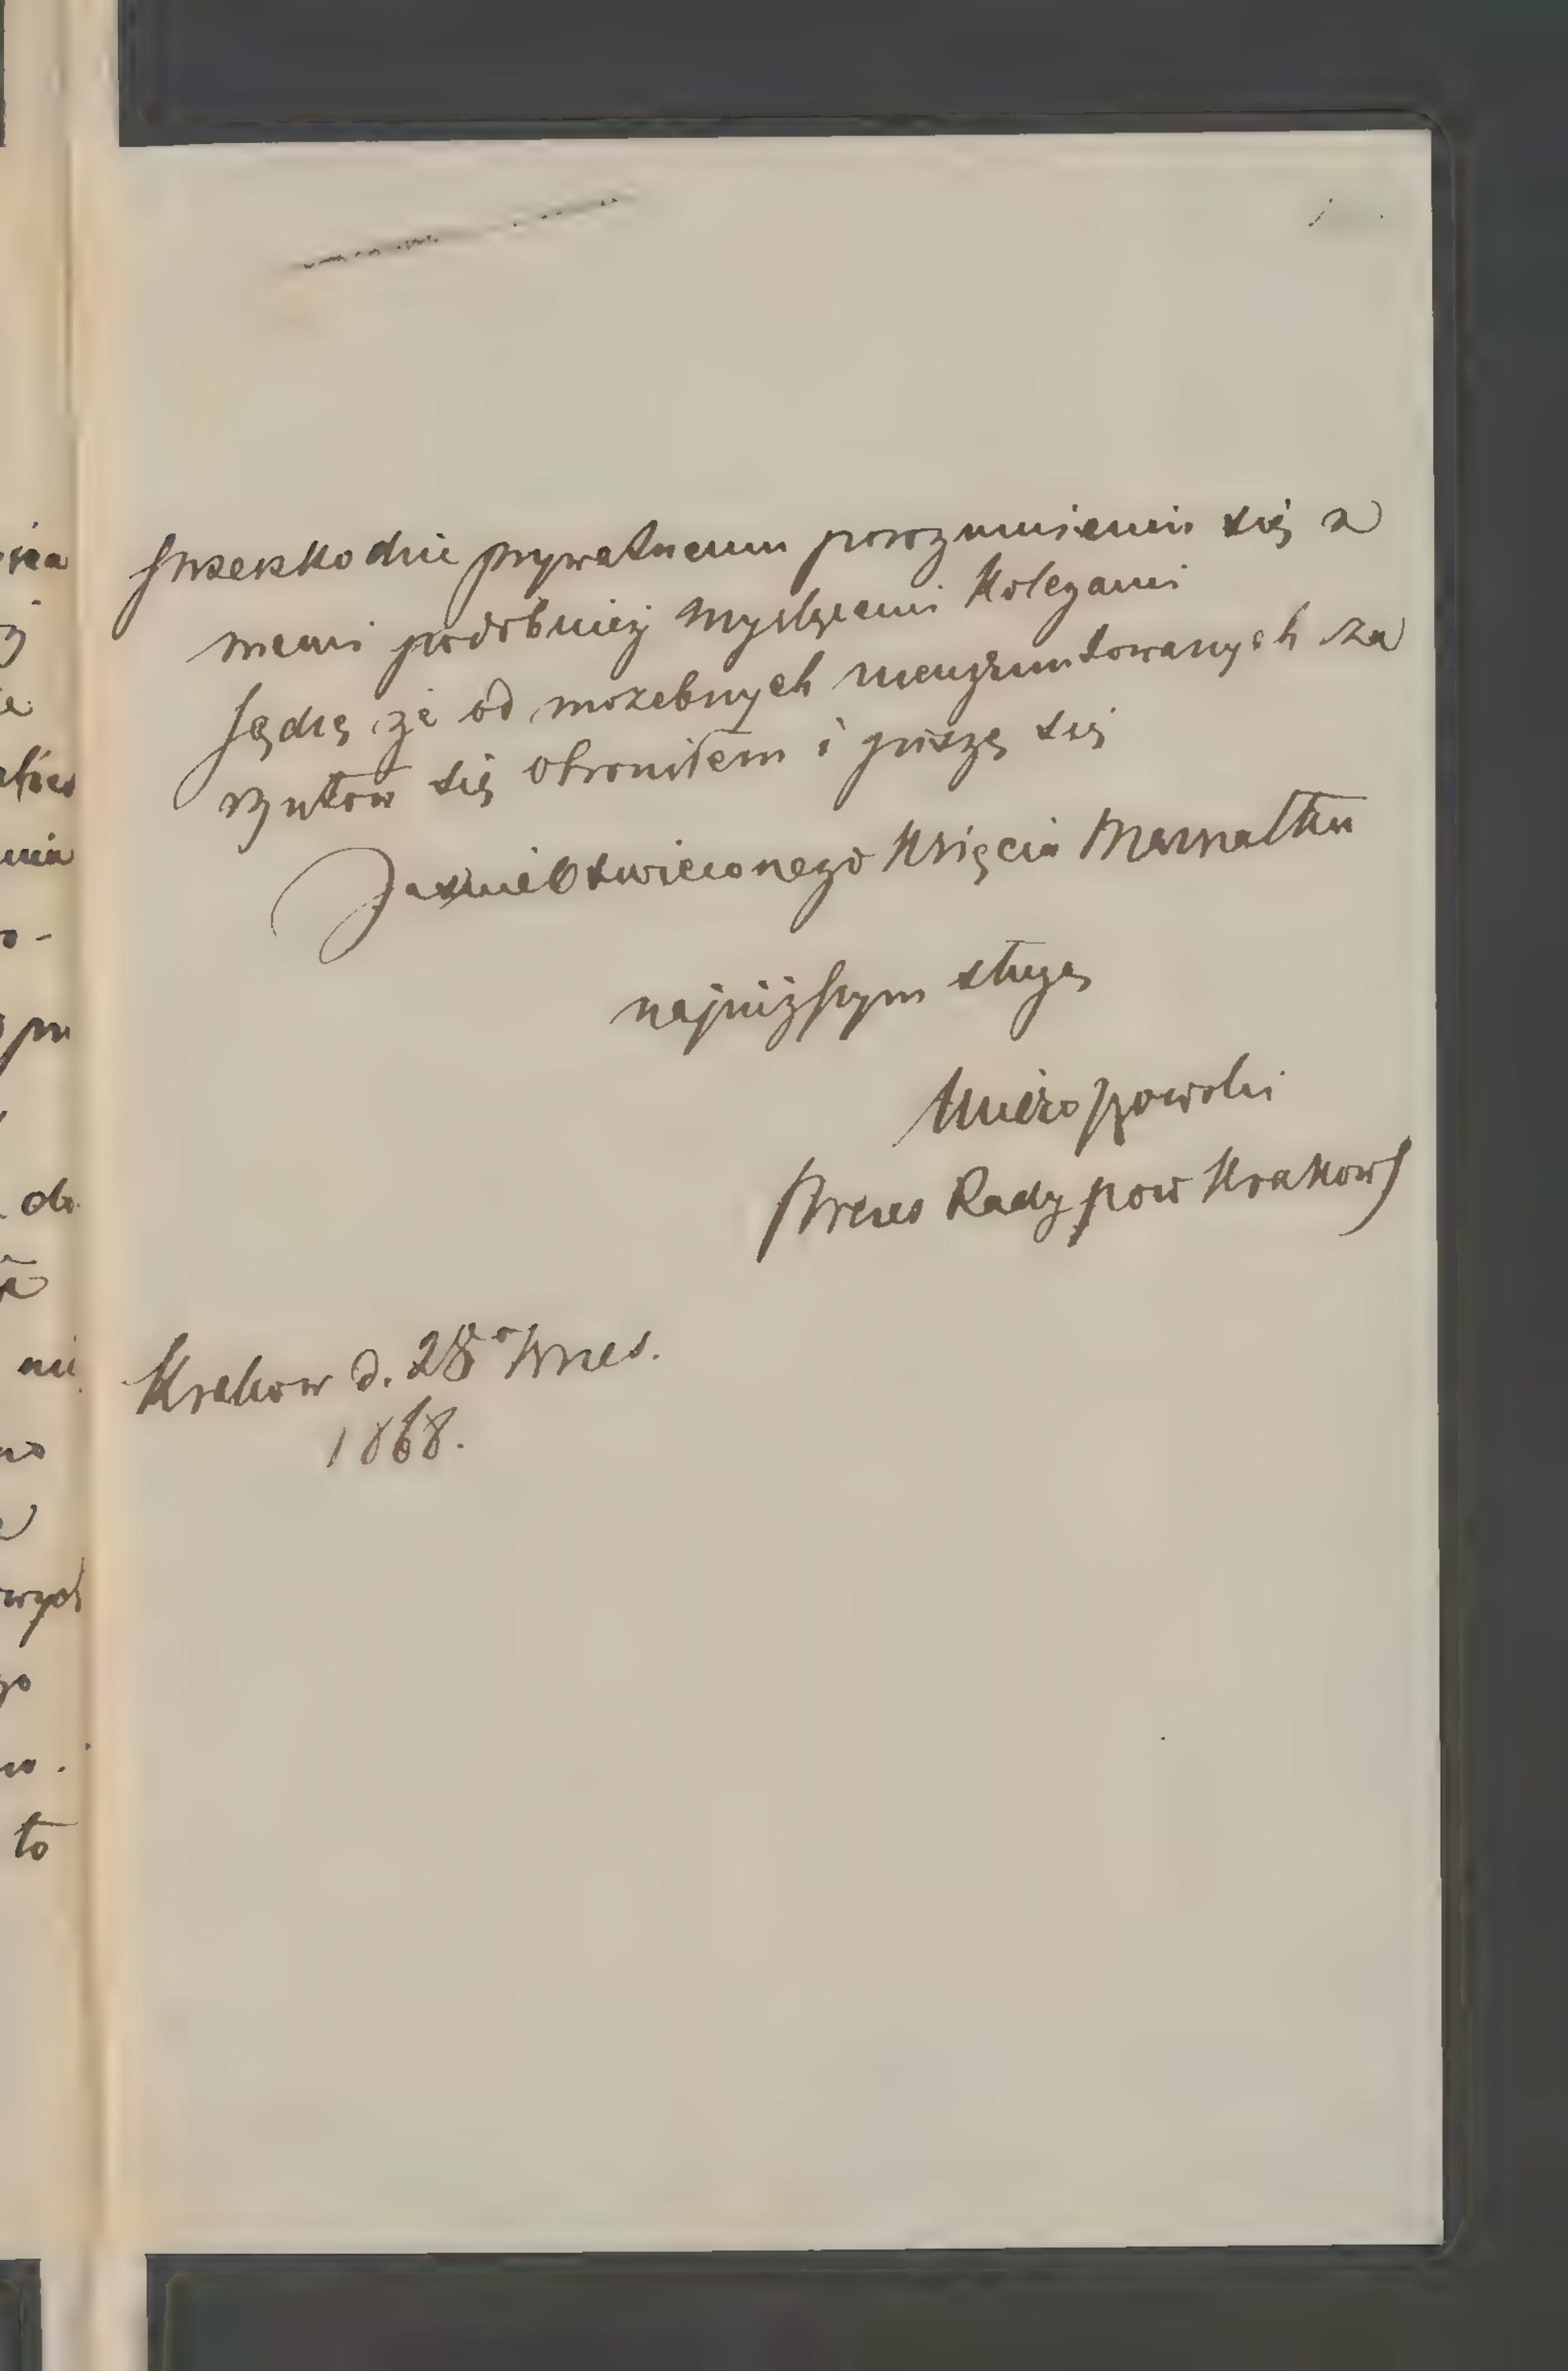 przeszkodzie prywatnemu porozumieniu się z
memi podobnież myslącemi Kolegami
sądzę że od możebnych nieugruntowanych za
rzutów się obroniłem i piszę się
JaśnieOświeconego Księcia Marszałka
najniższym sługą
Mieroszowski
Prezes Rady pow Krakows
Krakow d. 28° Wrzes.
1868.
do
to